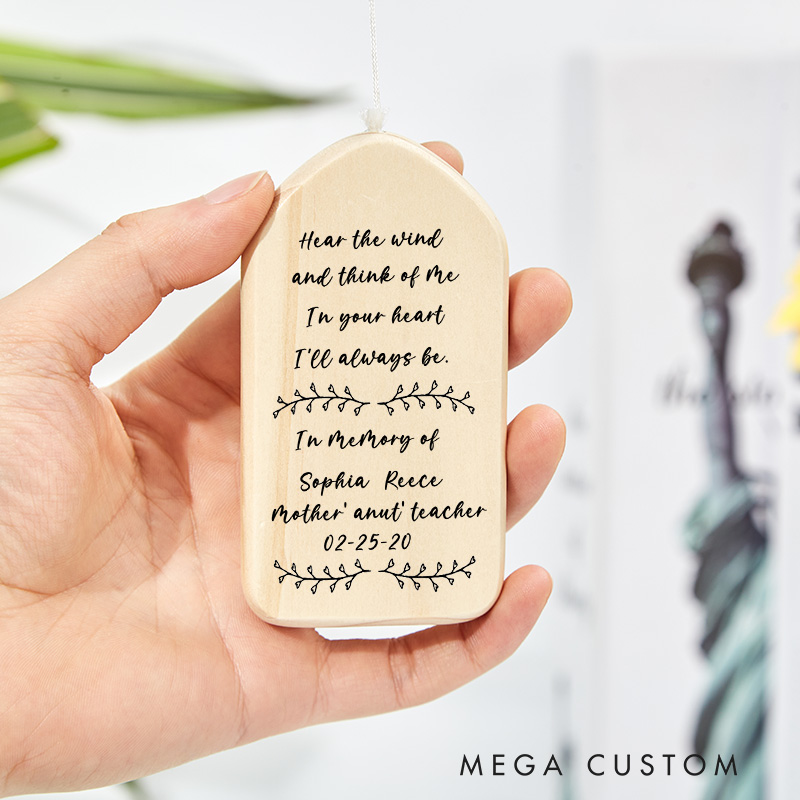 Hear the wind
and think of Me
In your heart
I'll always be.
In memory of
Sophia Reece
Mother' anut' teacher
02-25-20
MEGA CUSTOM